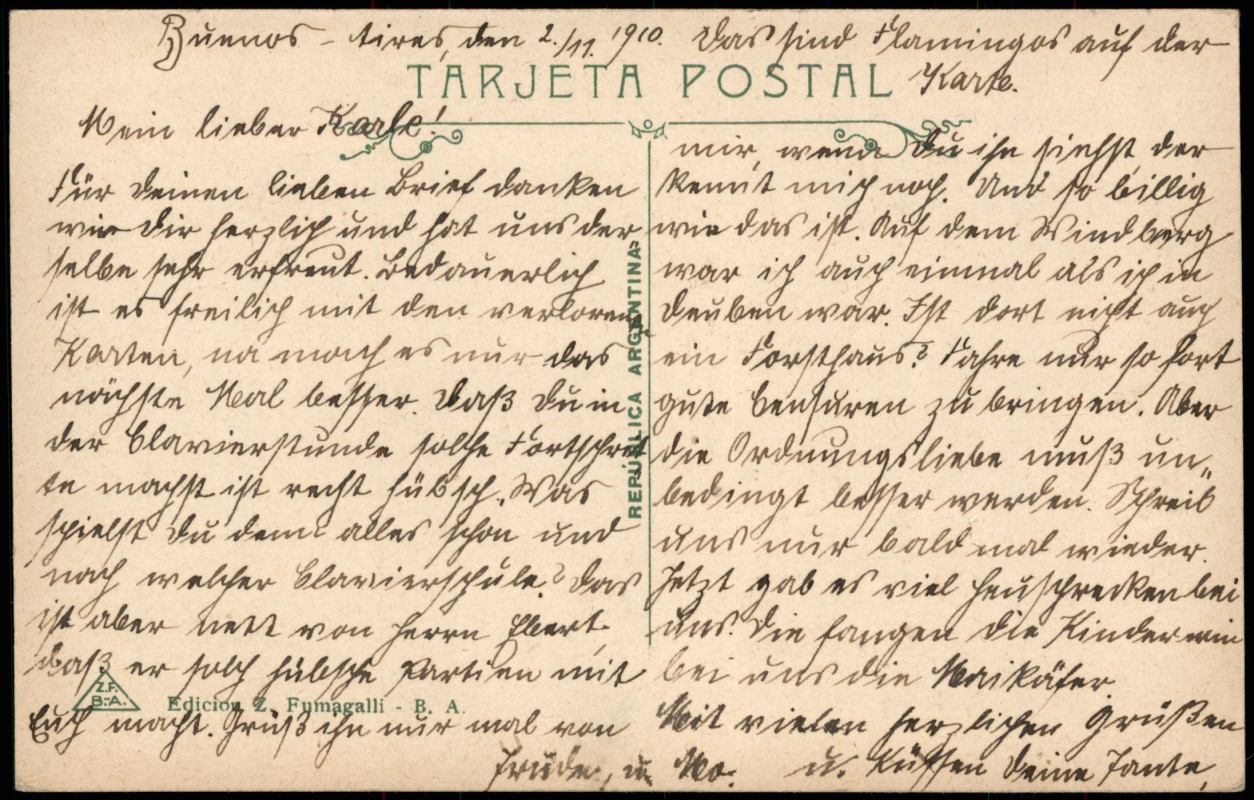 Buenos-Aires, den 2./11. 1910. Das sind Flamingos auf der
Karte.
TARJETA POSTAL
Mein lieber Karle!
Für Deinen lieben Brief danken
wir Dir herzlich und hat uns der
selbe sehr erfreut. Bedauerlich
ist es freilich mit den verlorenen
Karten, na mach es nur das
nächste Mal besser. Daß Du in
der Clavierstunde solche Fortschrit
te machst ist recht hübsch. Was
spielst Du denn alles schon und
nach welcher Clavierschule? Das
ist aber nett von Herrn Ebert
daß er solch hübsche Partien mit
Euch macht. Grüß ihn nur mal von
mir, wenn Du ihn siehst der
kennt mich noch. Und so billig
wie das ist. Auf dem Windberg
war ich auch einmal als ich in
Deuben war. Ist dort nicht auch
ein Forsthaus? Fahre nur so fort
gute Censuren zu bringen. Aber
die Ordnungsliebe muß un„
bedingt besser werden. Schreib
uns nur bald mal wieder.
Jetzt gab es viel Heuschrecken bei
uns. Die fangen die Kinder wie
bei uns die Maikäfer
Mit vielen herzlichen Grüßen
u. Küssen Deine Tante,
Trude, u. Mo.
REPÚBLICA ARGENTINA
Z.F.
B.-A.
Edicion Z. Fumagalli - B. A.